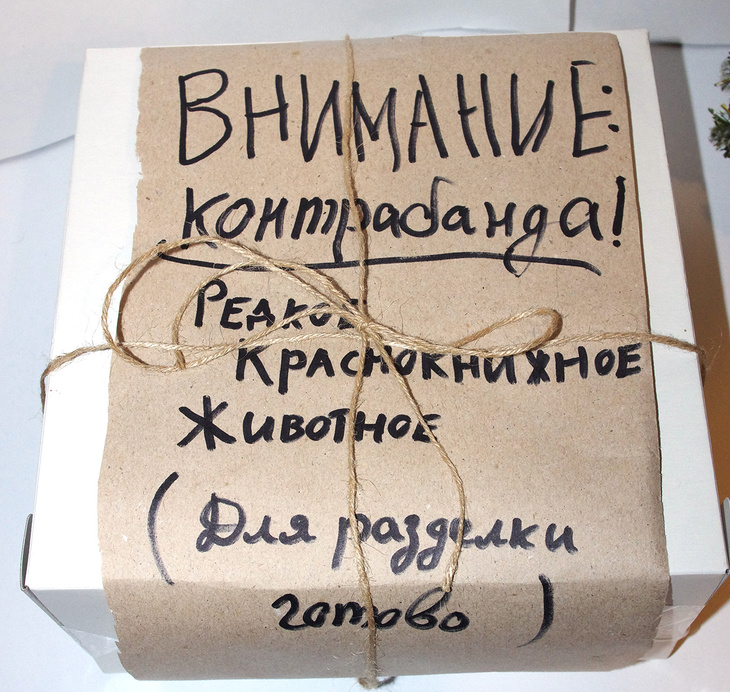 ВНИМАНИЕ:
контрабанда!
РЕДКОЕ
КРАСНОКНИЖНОЕ
ЖИВОТНОЕ
(Для разделки
готово)